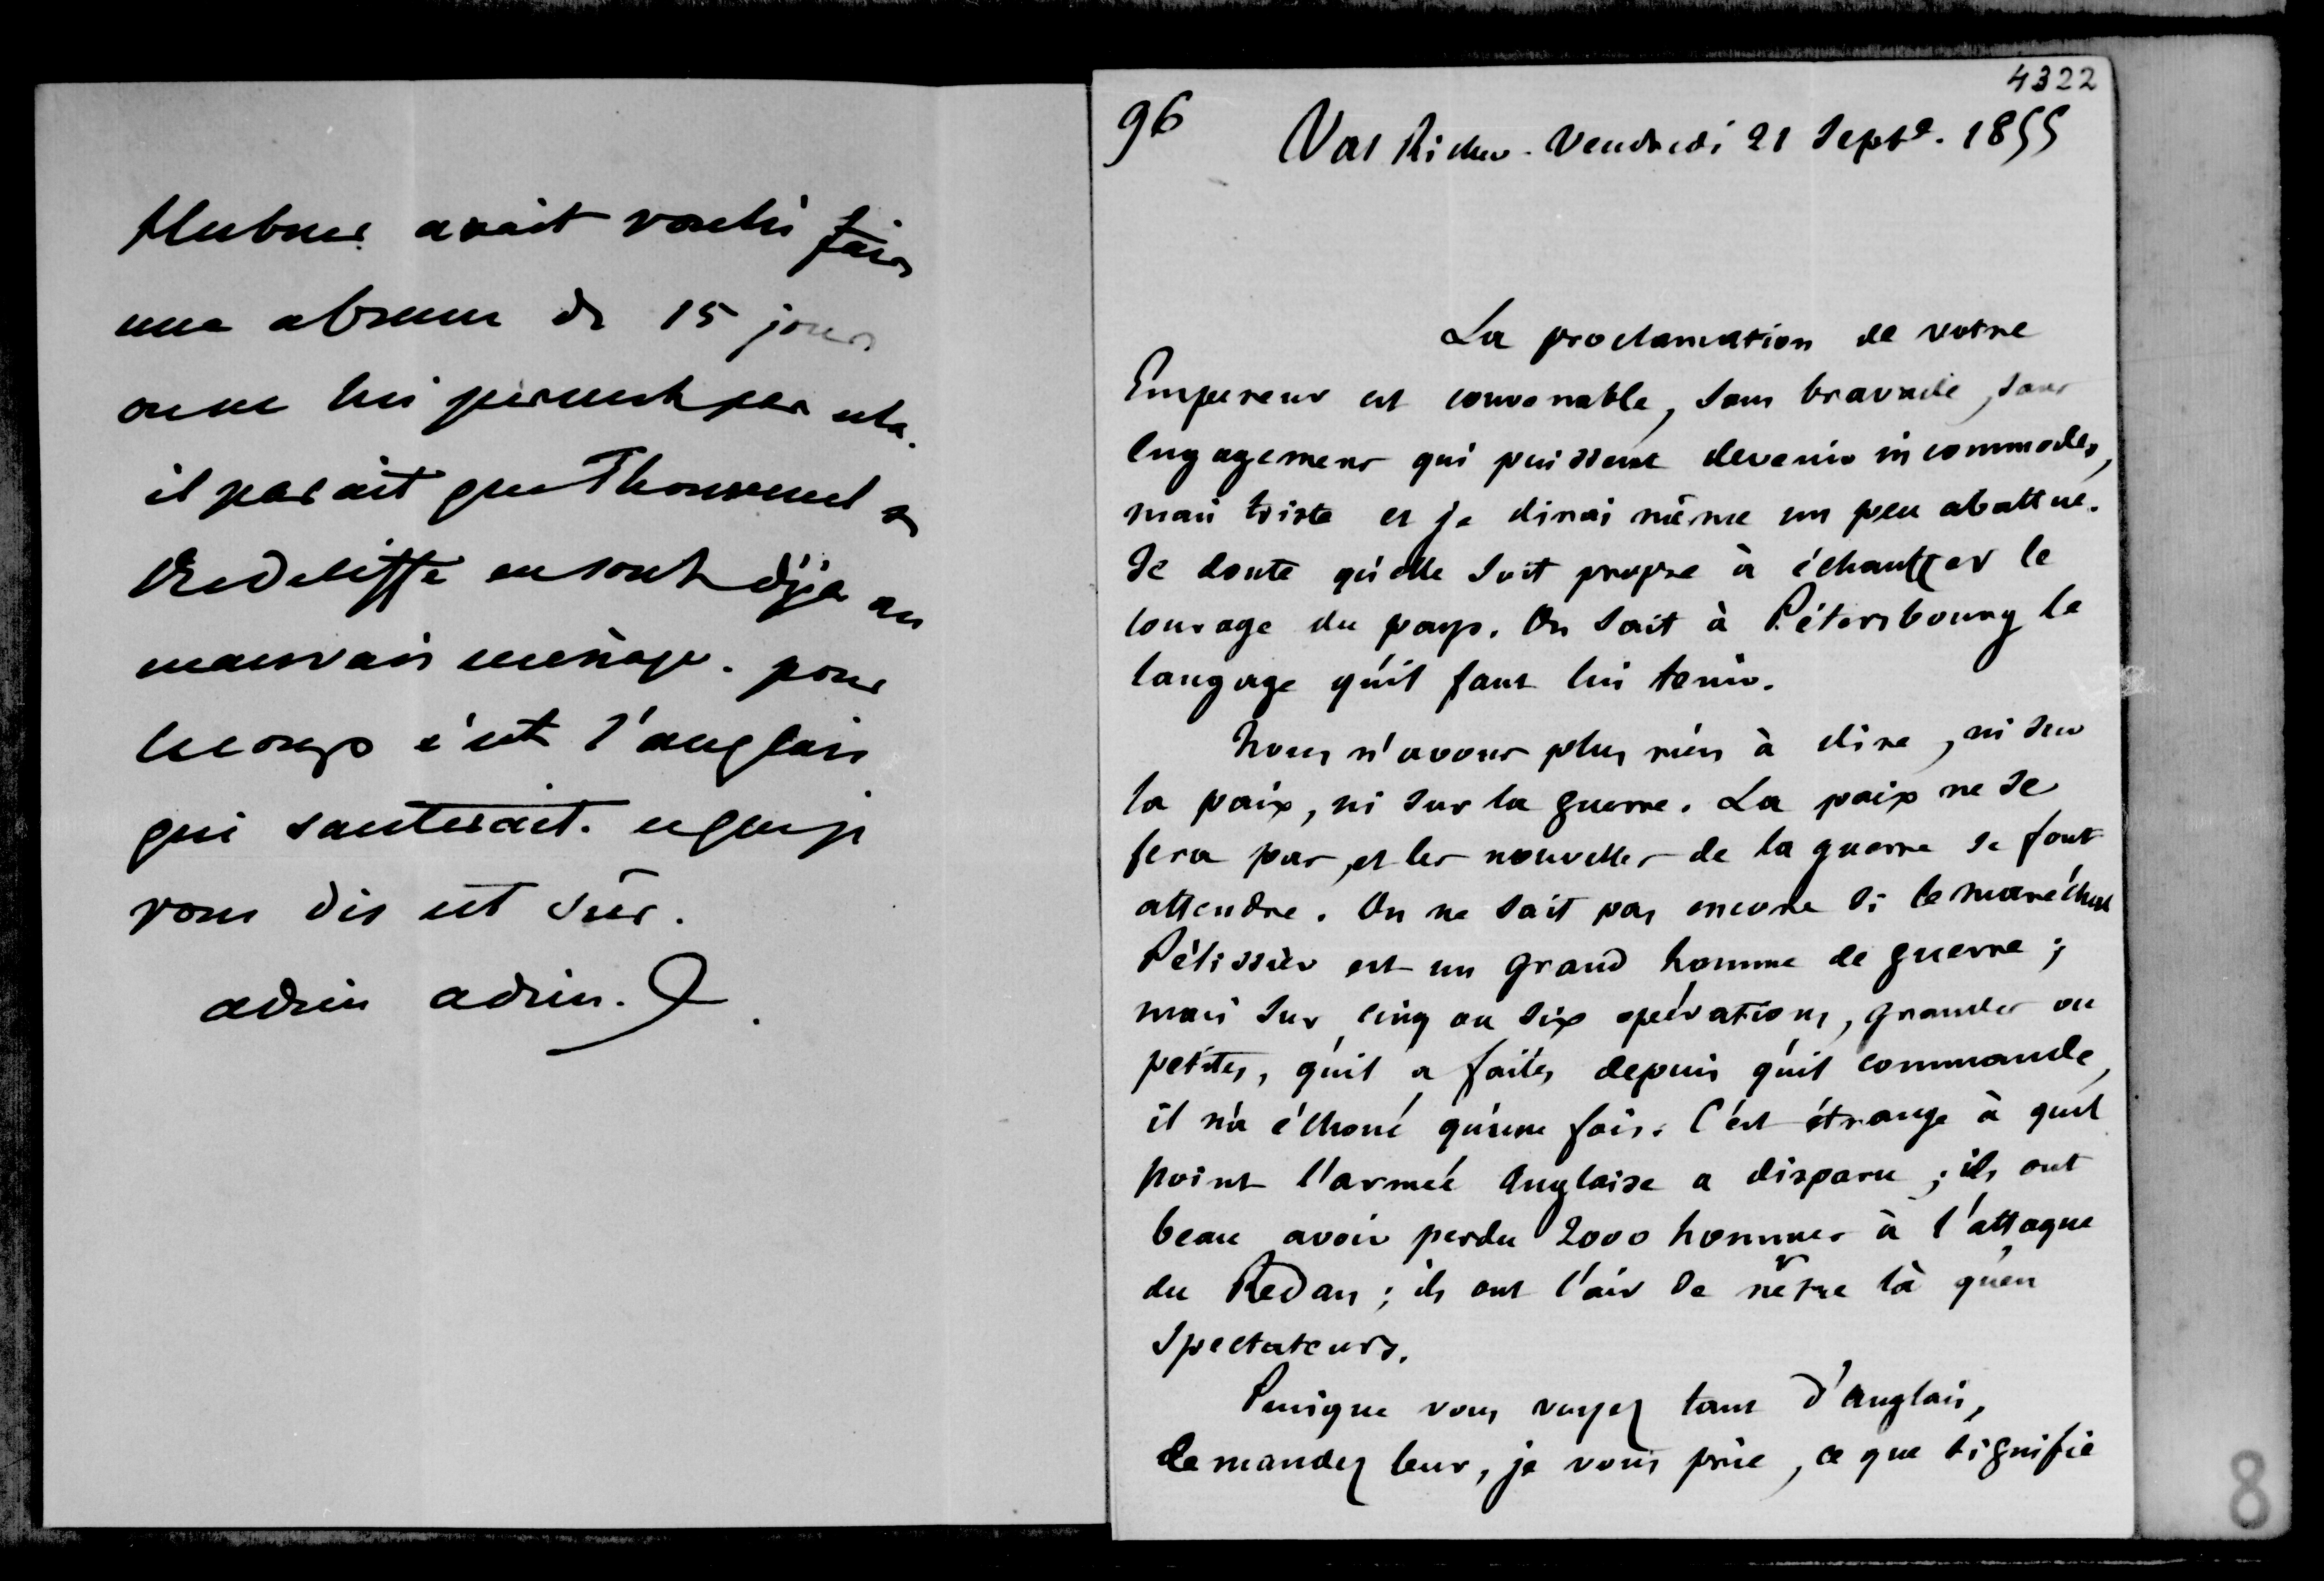 Hubner avait voulu faire
une absence de 15 jours
on ne lui permet pas cela.
il parait que Thouvenel &
Redcliffe en sont déja au
mauvais ménage. pour
le coup c'est l'anglais
qui sauterait. ce que je
vous dis est sûr.
adieu adieu.
4322
96
Val Richer. Vendredi 21 Septe. 1855
La proclamation de votre
Empereur est convenable, sans bravade, sans
engagemens qui puissent devenir incommodes,
mais triste et je dirai même un peu abattue.
Je doute qu'elle soit propre à échauffer le
courage du pays. On sait à Pétersbourg le
langage qu'il faut lui tenir.
Nous n'avons plus rien à dire, ni sur
la paix, ni sur la guerre. La paix ne se
fera pas, et les nouvelles de la guerre se font
attendre. On ne sait pas encore si le maréchal
Pélissier est un grand homme de guerre ;
mais sur cinq ou six opérations, grandes ou
petites, qu'il a faites depuis qu'il commande,
il n'a échoué qu'une fois. C'est étrange à quel
point l'armée Anglaise a disparu ; ils ont
beau avoir perdu 2000 hommes à l'attaque
du Redan ; ils ont l'air de n'être là qu'en
spectateurs.
Puisque vous voyez tant d'Anglais,
demandez leur, je vous prie, ce que signifie
8